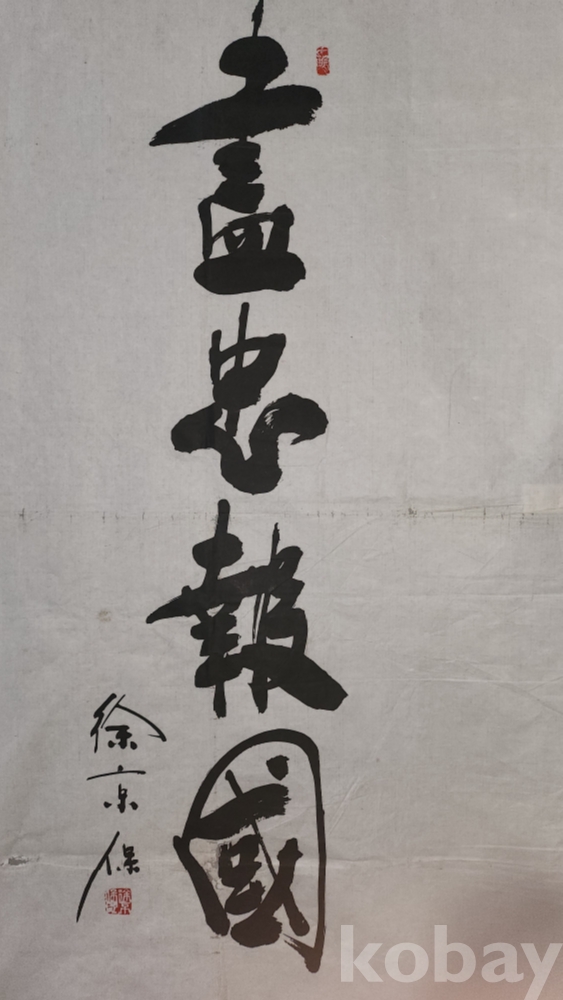 盡忠報國
徐京保
kobay